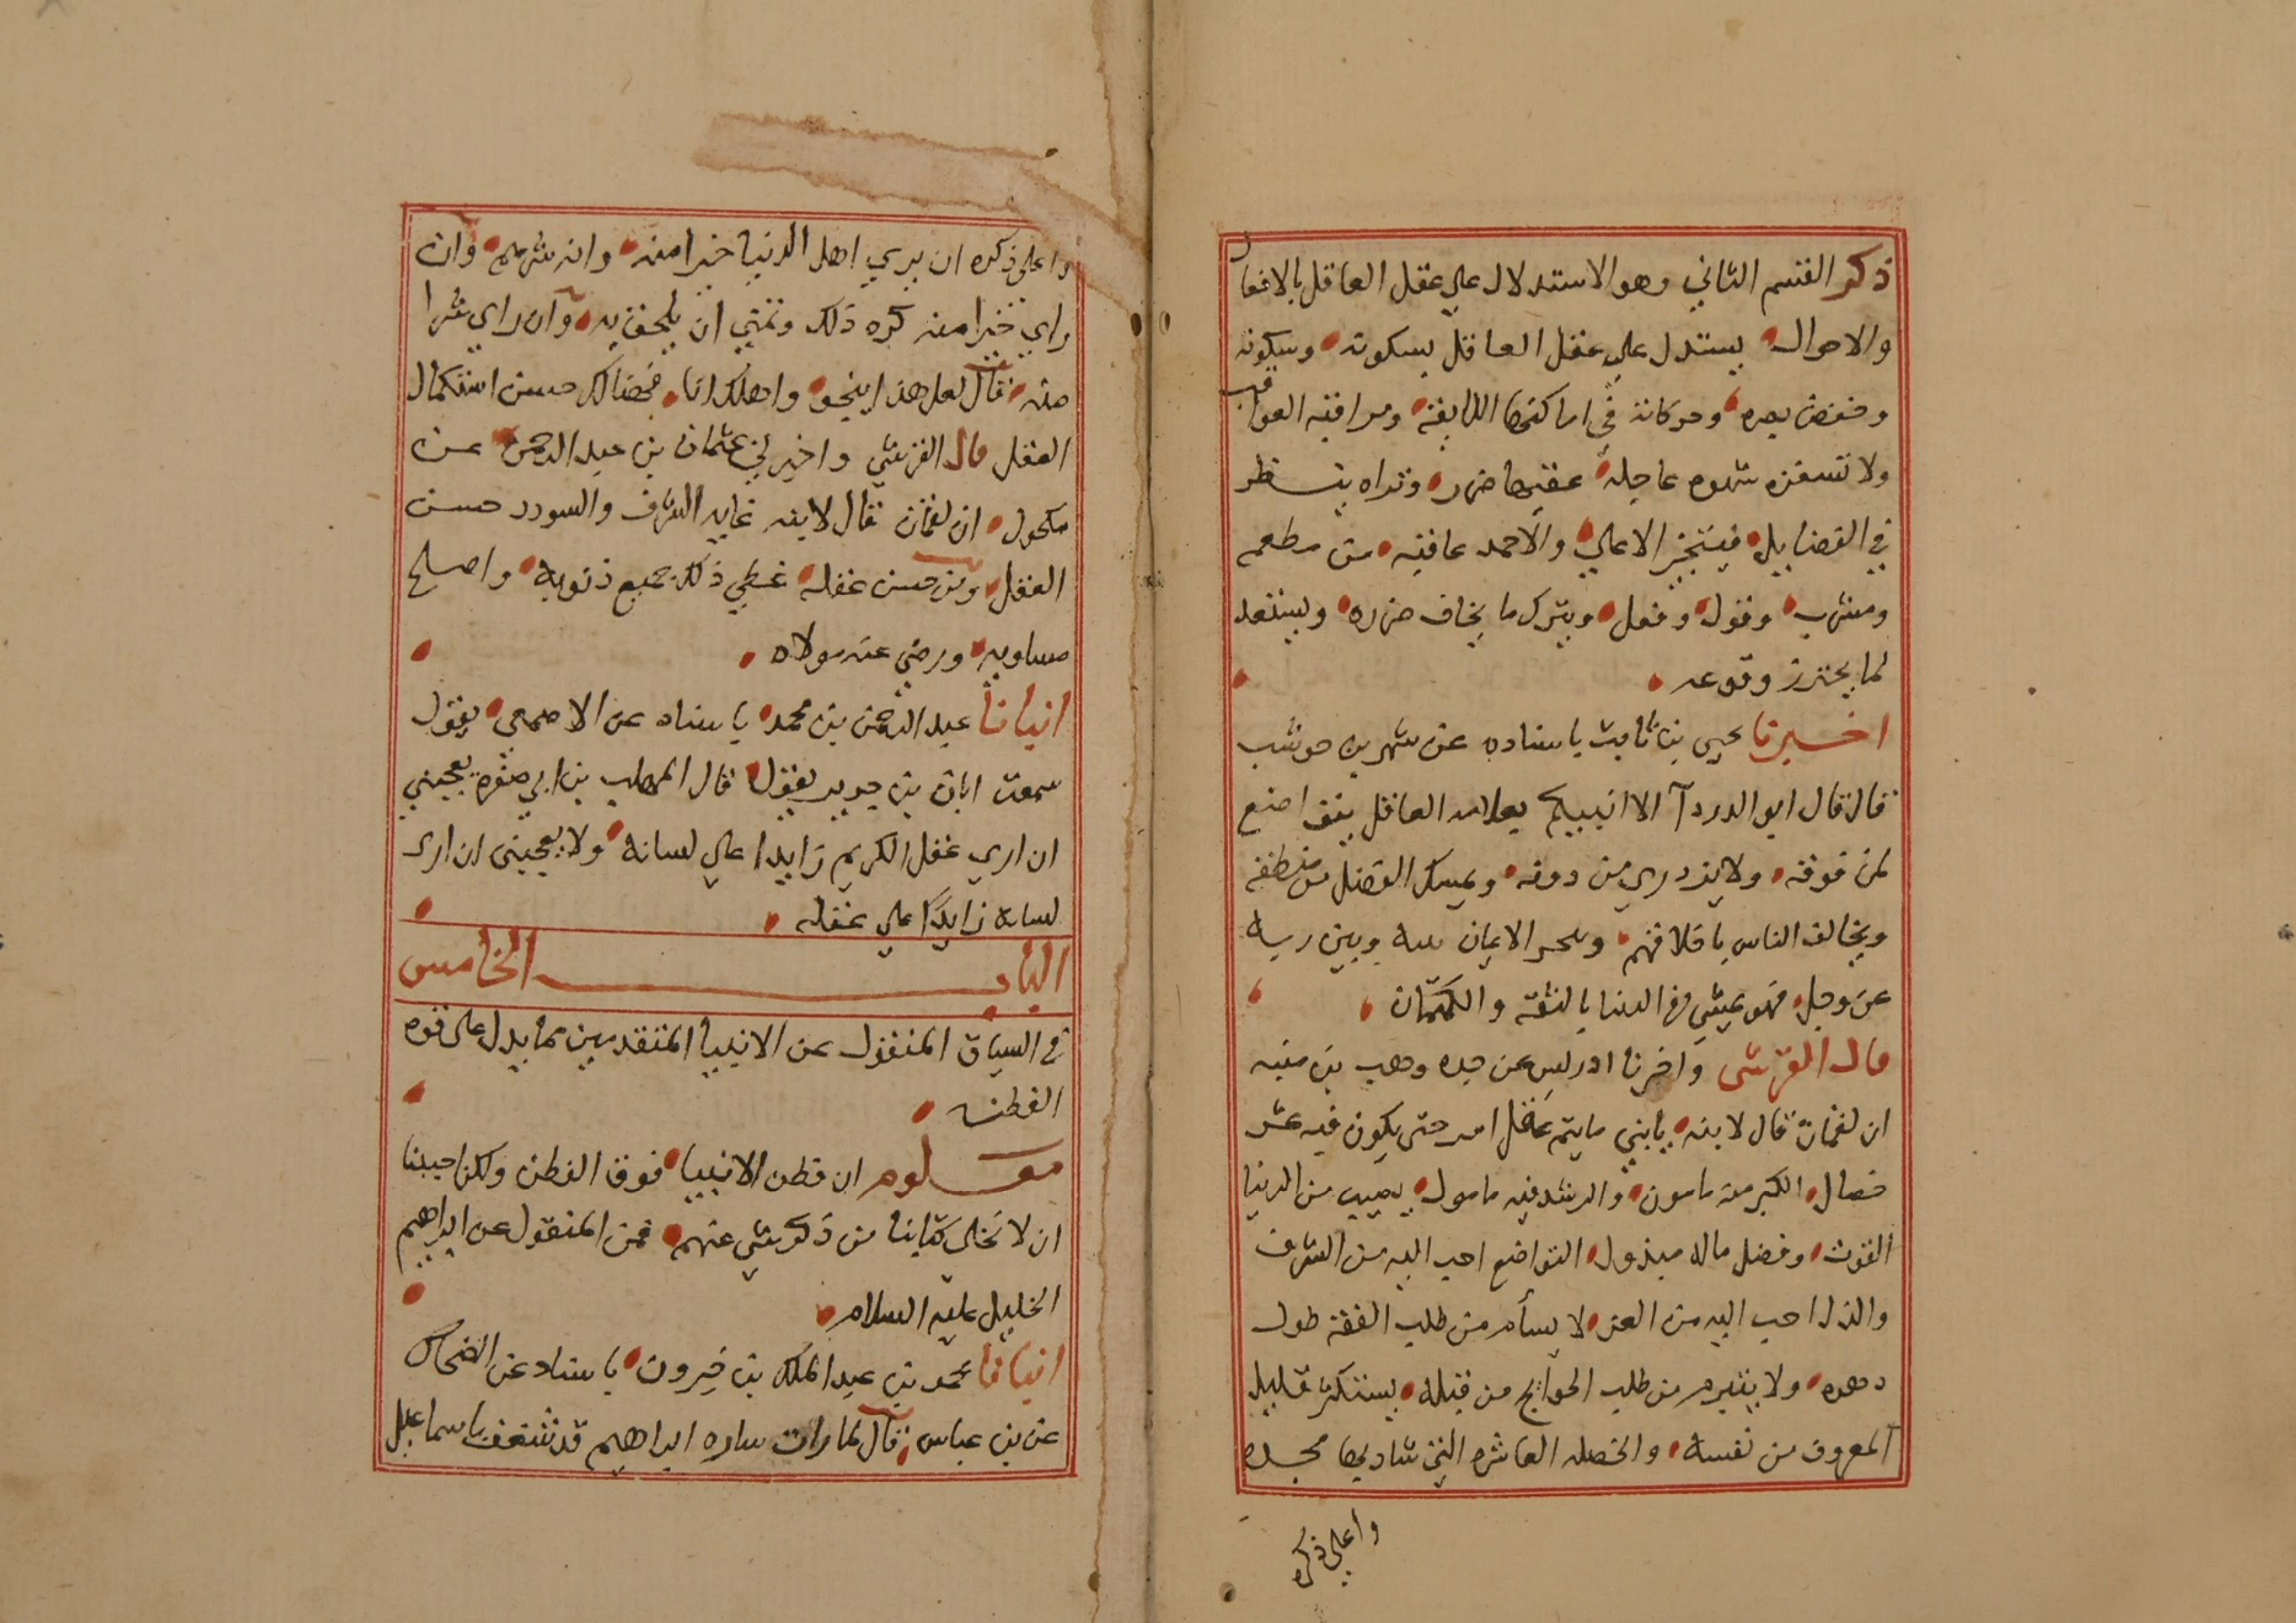 ذكر القسم الثاني وهو الاستدلال علي عقل العاقل بالافعال
والاحوال يستدل علي عقل العاقل بسكوته وسكونه
وخفض بصره وحركاته في اماكنها اللايقة ومراقبته العواقب
ولا تستفزه شهوه عاجله عقبيها ضرر وتراه ينظر
في القضايل فيتخير الاعلي والاحمد عاقبه من مطعم
ومشرب وقول وفعل ويترك ما يخاف ضرره ويستعد
لما يحترز وقوعه
اخبرنا يحيي بن ثابت باسناده عن شهر بن حوشب
قال قال ابو الدردآ الا انبيكم بعلامه العاقل يتواضع
لمن فوقه ولا يزدري من دونه ويمسك الفضل من منطقه
ويخالف الناس باخلاقهم ويحجر الايمان بينه وبين ربه
عز وجل فهو يمشي في الدنيا بالتقه والكتمان
قال القرشي واخبرنا ادريس عن جده وهب بن منبه
ان لقمان قال لابنه يا بني ما يتم عقل امر حتى يكون فيه عشر
خصال الكبر منه مامون والرشد فيه مامول يصيب من الدنيا
القوت وفضل ماله مبذول التواضع احب اليه من الشرف
والذل احب اليه من العز لا يسأم من طلب الفقه طول
دهره ولا يتبرم من طلب الحوايج من قبله يستكثر قليل
المعروف من نفسه والخصله العاشره التي شاد بها مجده
واعلي ذكره
واعلي ذكره ان يري اهل الدنيا خيرا منه وانه شرهم وان
راي خيرا منه كره ذلك وتمني ان يلحق به وان راي شرا
منه قال لعل هذا ينجو واهلك انا فهناك حسن استكمال
العقل قال القرشي واخبرني عثمان بن عبد الرحمن عن
مكحول ان لقمان قال لابنه غايه الشرف والسودد حسن
العقل ومن حسن عقله غطي ذلك جميع ذنوبه واصلح
مساويه ورضي عنه مولاه
انبانا عبد الرحمن بن محمد باسناده عن الاصمعي يقول
سمعت ابان بن جرير يقول قال المهلب بن ابي صفره يعجبني
ان اري عقل الكريم زايدا علي لسانه ولا يعجبني ان اري
لسانه زايدا علي عقله
الباب الخامس
في السياق المنقول عن الانبيا المتقدمين مما يدل علي قوه
الفطنه
معلوم ان فطن الانبيا فوق الفطن ولكن احببنا
ان لا تخلي كتابنا من ذكر شي عنهم فمن المنقول عن ابراهيم
الخليل عليه السلام
انبانا محمد بن عبد الملك بن خيرون باسناد عن الضحاك
عن بن عباس قال لما رات ساره ابراهيم قد شغف باسماعيل